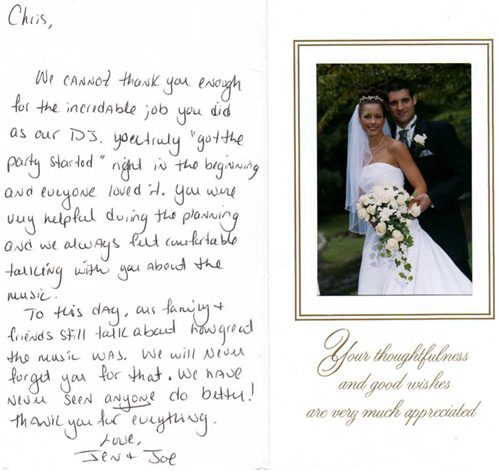 Chris,
We cannot thank you enough
for the incredable job you did
as our DJ. You truly "got the
party started" right in the beginning
and everyone loved it. You were
very helpful during the planning
and we always felt comfortable
talking with you about the
music.
To this day, our family +
friends still talk about how great
the music was. We will never
forget you for that. We have
never seen anyone do better!
Thank you for everything.
Love,
Jen & Joe
Your thoughtfulness
and good wishes
are very much appreciated